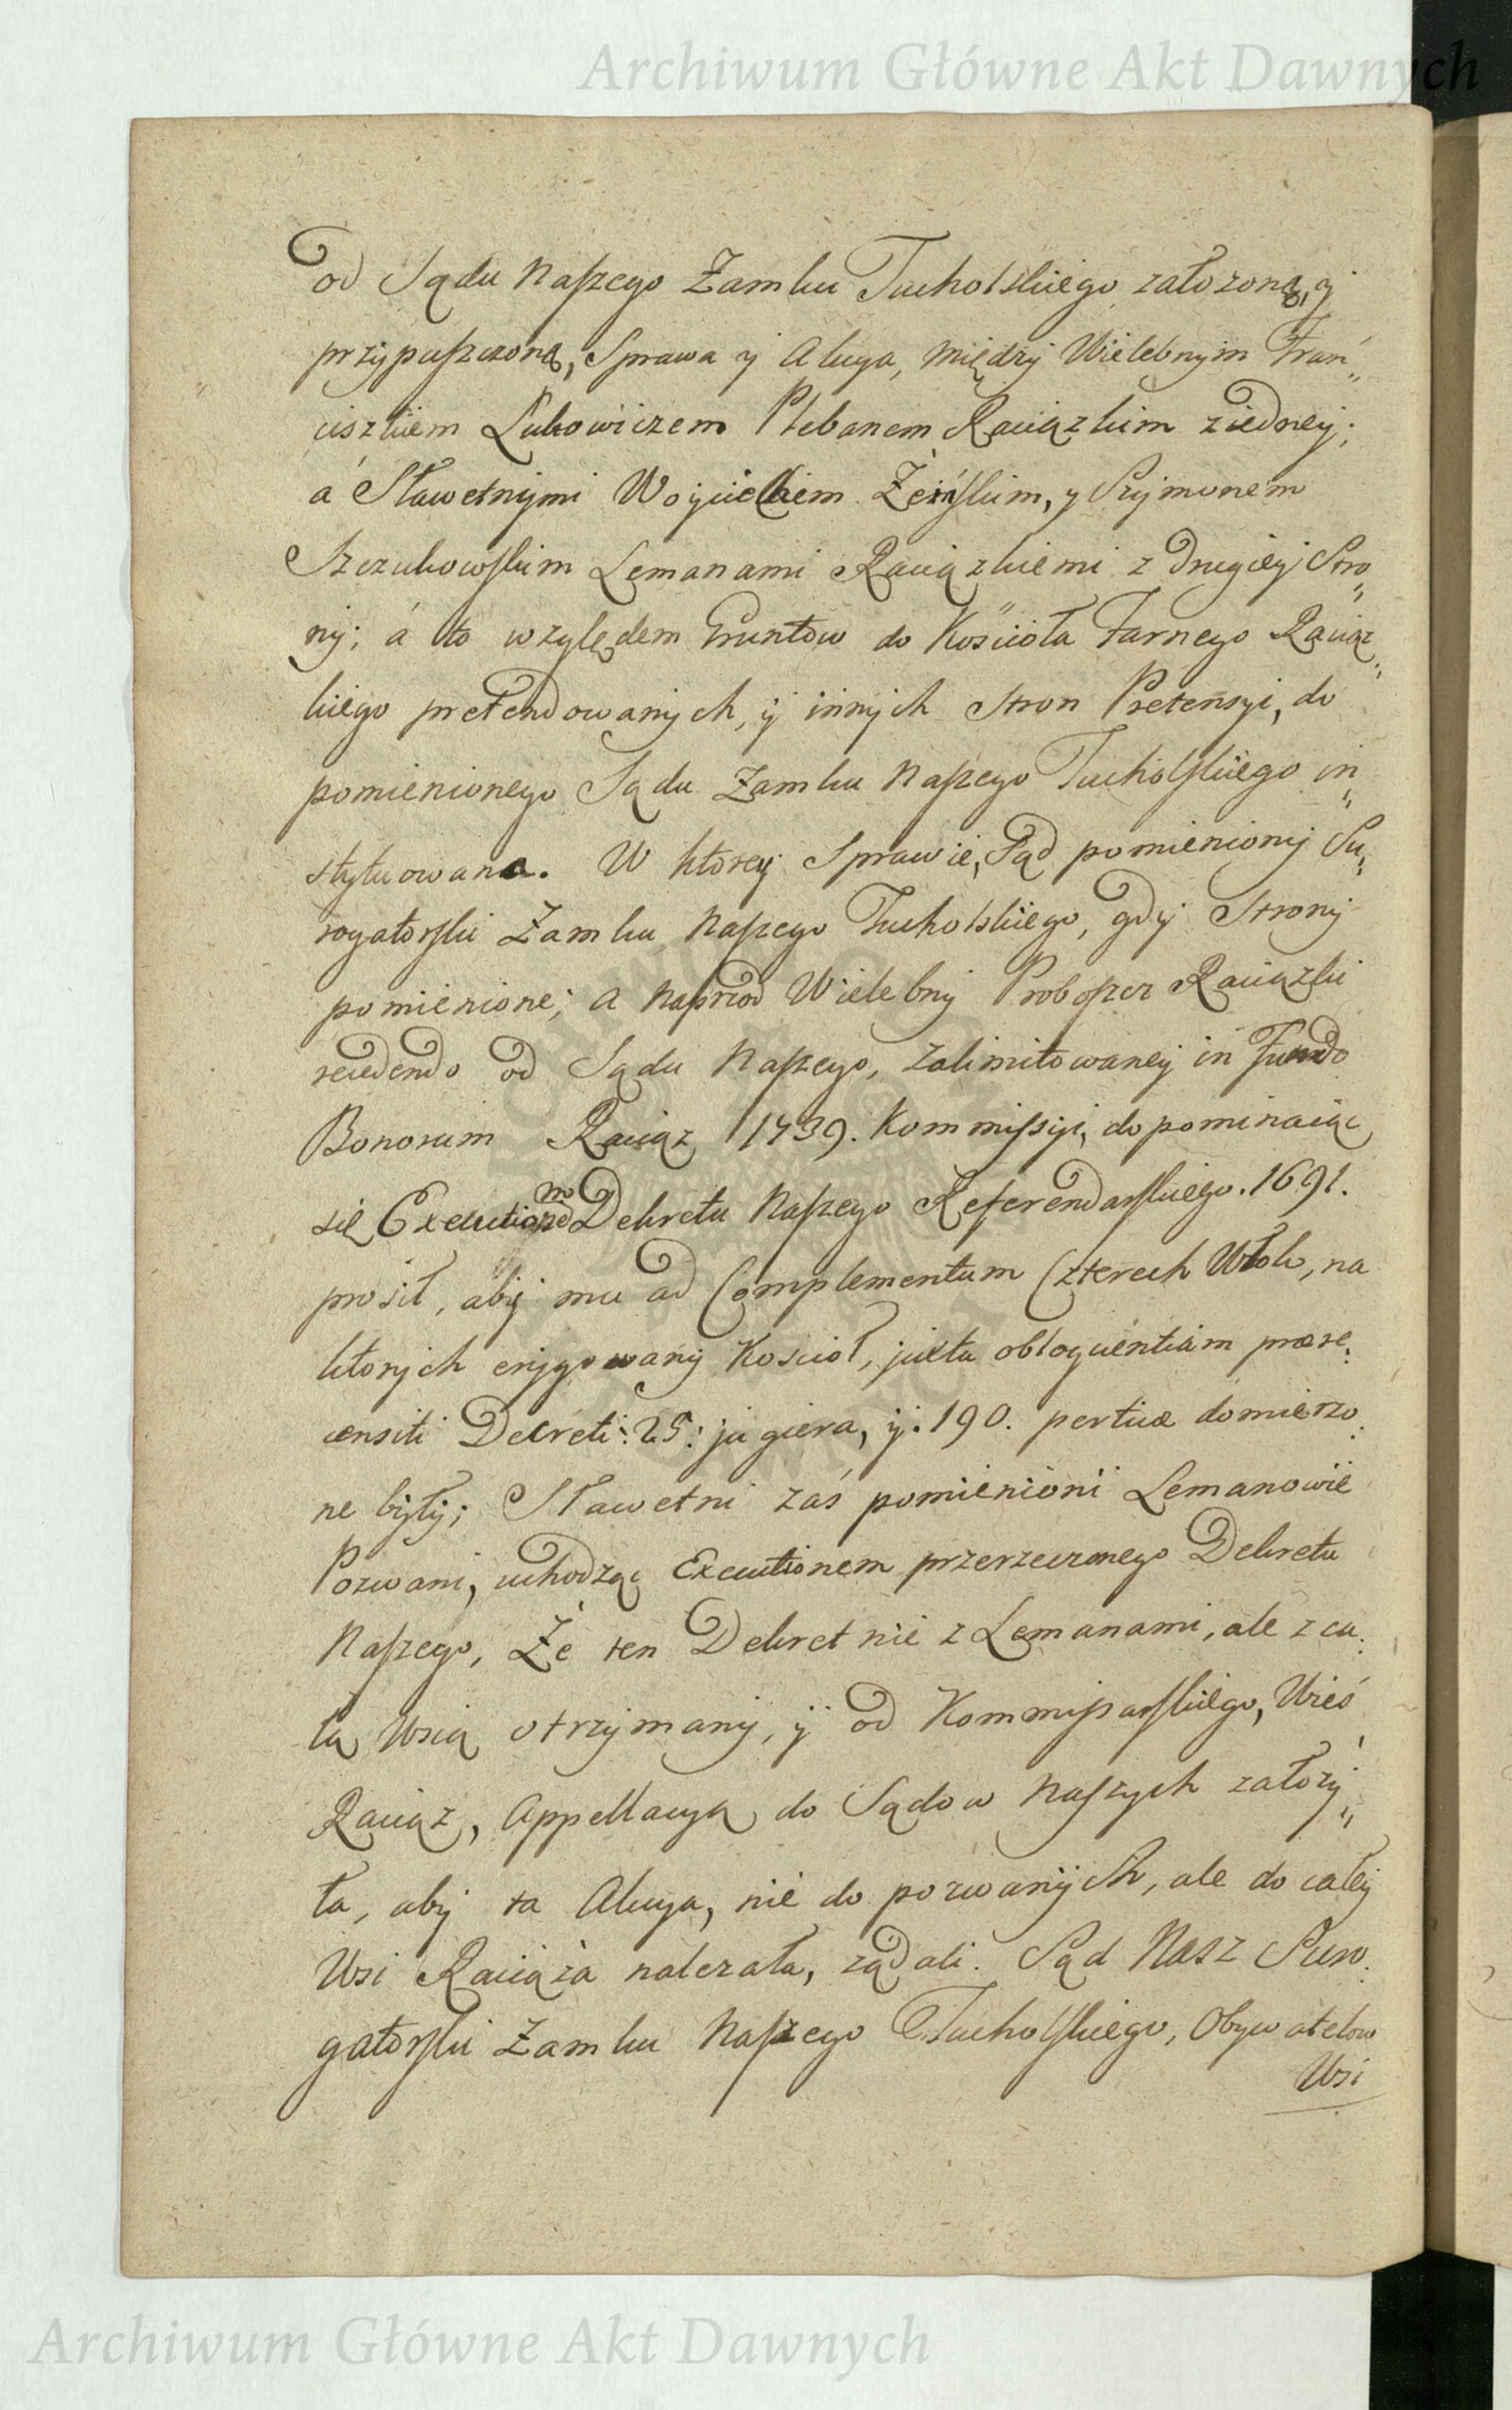 Archiwum Główne Akt Dawnych
od Sądu Naszego Zamku Tucholskiego załozoną, y
przypuszczoną, Sprawa y Akcya, między Wielebnym Fran„
ciszkiem Łukowiczem Plebanem Raciązkim z iedney;
á Sławetnymi Woyciechem Żeińskim, y Szymonem
Szczukowskim Lemanami Raciązkiemi z drugiey Stro„
ny; á to względem Gruntow do Kościoła Farnego Raciąz„
kiego pretendowanych, y innych Stron Pretensyi, do
pomienionego Sądu Zamku Naszego Tucholskiego in„
stytuowana. W ktorey Sprawie, Sąd pomieniony Su„
rogatorski Zamku Naszego Tucholskiego, gdy Strony
pomienione; a naprzod Wielebny Proboszcz Raciązki
recedendo od Sądu Naszego, zalimitowaney in Fundo
Bonorum Raciąz 1739. Kommissyi, dopominaiąc
się Executionem Dekretu Naszego Referendarskiego. 1691.
prosił, aby mu ad Complementum Czterech Włok, na
ktorych erygowany Koscioł, juxta obloquentiam prære„
censiti Decreti: 25: jugiera, y. 190. perticæ domierzo„
ne były; Sławetni zaś pomienioni Lemanowie
Pozwani, uchodząc Executionem przerzeczonego Dekretu
Naszego, Że ten Dekret nie z Lemanami, ale z ca„
łą Wsią otrzymany, y od Kommissarskiego, Wieś
Raciąz, Appellacyą do Sądow Naszych załozy„
ła, aby ta Akcya, nie do pozwanych, ale do całey
Wsi Raciąza nalezała, ządali. Sąd Nasz Suro„
gatorski Zamku Naszego Tucholskiego, Obywatelow
Wsi
Archiwum Główne Akt Dawnych